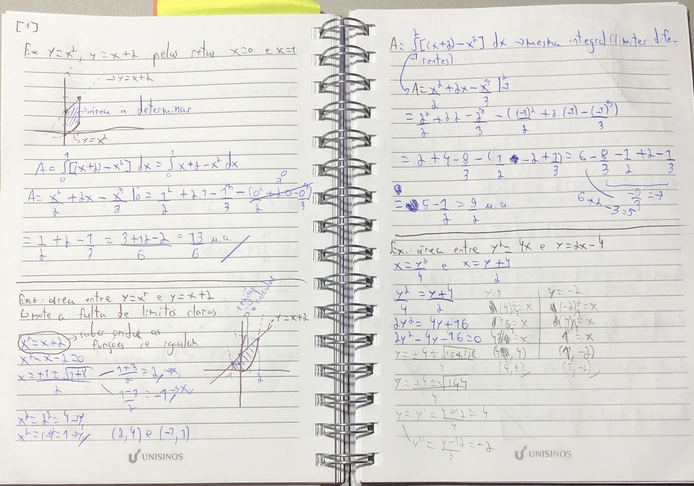 [1]
Ex: y=x², y=x+2 pelas retas x=0 e x=1
y=x+2
área a determinar
y=x²
A=∫₀¹[(x+2)-x²] dx = ∫₀¹ x+2-x² dx
A= x²/2 + 2x - x³/3 |₀¹ = 1²/2 + 2·1 - 1³/3 - (0²+2·0-0³)
= 1/2 + 2 - 1/3 = 3+12-2/6 = 13/6 u.a
Ex: área entre y=x² e y=x+2
note a falta de limites claros
x²=x+2 → saber onde as
funções se igualam
x²-x-2=0
x=+1±√1+8/2 1+3/2=2→x₁
1-3/2=-1→x₂
y=x+2
-1 2
x²=2²=4→y₁
x²=(-1)²=1→y₂ (2,4) e (-1,1)
UNISINOS
A=∫[(x+2)-x²] dx → mesma integral (limites dife-
rentes)
A= x²/2 + 2x - x³/3 |
= 2²/2 + 2·2 - 2³/3 - ((-1)²/2 + 2·(-1) - (-1)³/3)
= 2+4-8/3 - (1/2 -2+1/3) = 6-8/3-1/2+2-1/3
= 5-1/2 = 9/2 u.a.
6+2-3=5
-9/3=-3
Ex: área entre y²=4x e y=2x-4
x=y²/4 e x=y+4/2
y²/4 = y+4/2 y=4 y=-2
2y²=4y+16
2y²-4y-16=0
(4,4) (1,-2)
y=+4±√144/4
y=y'=4+12/4=4
y''=4-12/4=-2
UNISINOS